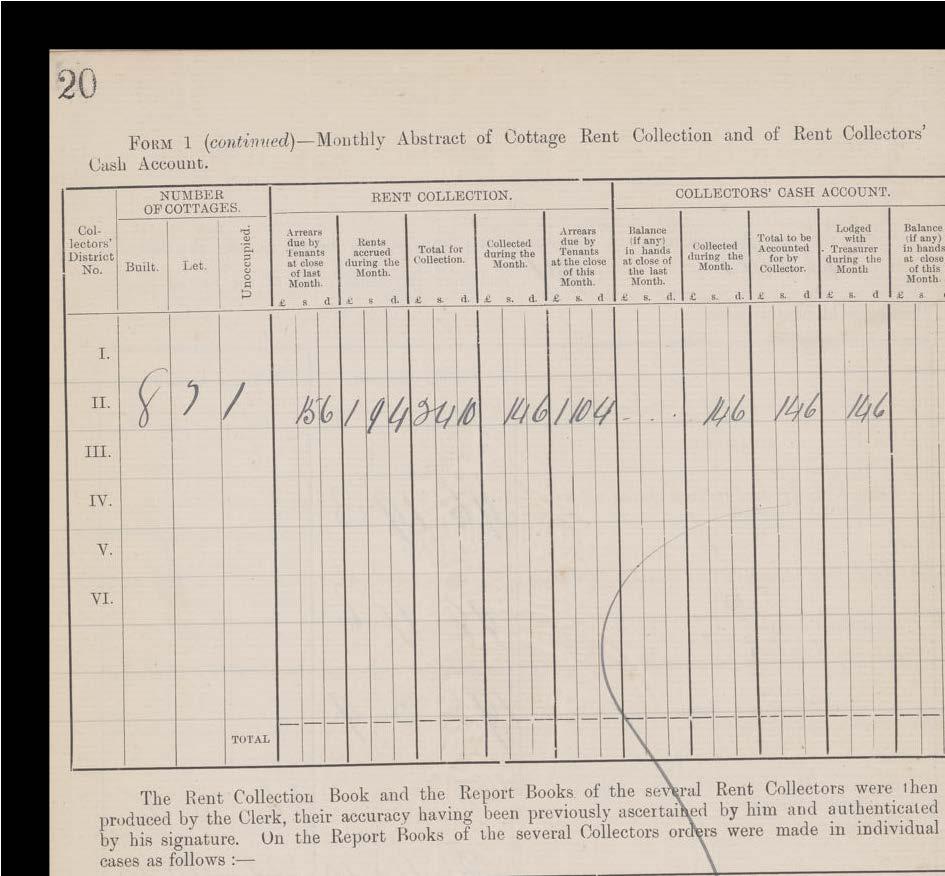 20
FORM 1 (continued)—Monthly Abstract of Cottage Rent Collection and of Rent Collectors'
Cash Account.
Collectors' District No.
NUMBER OF COTTAGES.
Built.
Let.
Unoccupied.
RENT COLLECTION.
Arrears due by Tenants at close of last Month.
Rents accrued during the Month.
Total for Collection.
Collected during the Month.
Arrears due by Tenants at the close of this Month.
COLLECTORS' CASH ACCOUNT.
Balance (if any) in hands at close of the last Month.
Collected during the Month.
Total to be Accounted for by Collector.
Lodged with Treasurer during the Month
Balance (if any) in hands at close of this Month.
£ s d £ s d. £ s. d. £ s. d. £ s d £ s. d. £ s. d. £ s. d £ s. d £ s.
I.
II. 8 7 1 15 6 1 9 4 2 4 10 14 6 1 10 4 - . . 14 6 14 6 14 6
III.
IV.
V.
VI.
TOTAL
The Rent Collection Book and the Report Books of the several Rent Collectors were then
produced by the Clerk, their accuracy having been previously ascertained by him and authenticated
by his signature. On the Report Books of the several Collectors orders were made in individual
cases as follows :—